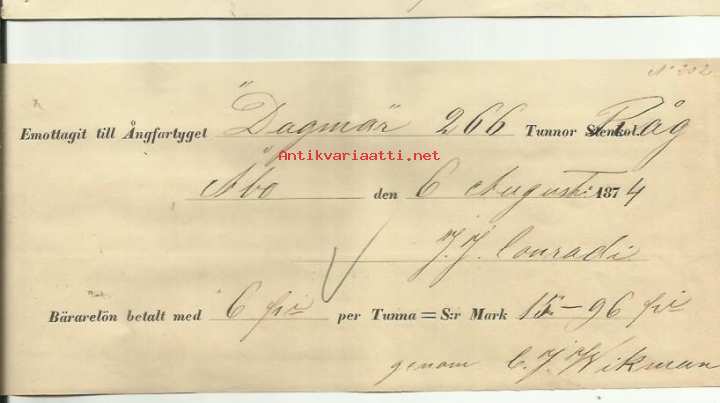 N° 302
Emottagit till Ångfartyget "Dagmar" 266 Tunnor Stenkol. Råg
Antikvariaatti.net
Åbo den 6 August: 1874
J. J. Conradi
Bärarelön betalt med 6 pi per Tunna = S:r Mark 15-96 pi
genom C. J. Wikman